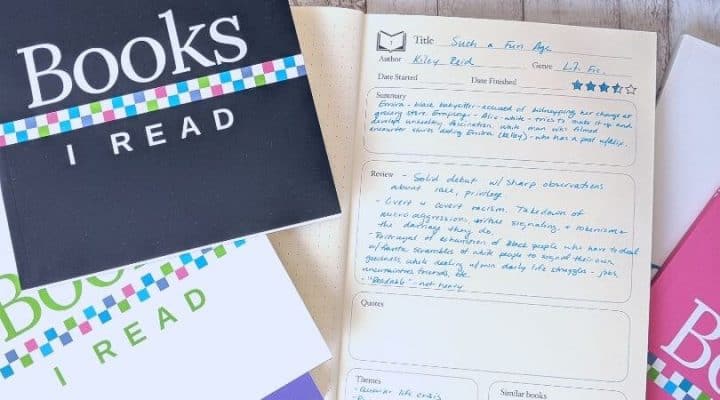 Books
I READ
Books
I READ
1
Title Such a Fun Age
Author Kiley Reid Genre Lit Fic.
Date Started Date Finished
Summary
Emira - black babysitter - accused of kidnapping her charge at
grocery store. Employer - Alix - white - tries to make it up and
develops unhealthy fascination. White man who filmed
encounter starts dating Emira (Kelley) - who has a past w/Alix.
Review - Solid debut w/ sharp observations
about race, privilege
- Overt & covert racism. Takedown of
micro aggressions, virtue signaling, & tokenism &
the damage they do.
- Portrayal of exhaustion of Black people who have to deal
w/frantic scrambles of white people to signal their own
goodness while dealing w/own daily life struggles - jobs,
uncertainties, friends, etc.
- "Readable" - not heavy
Quotes
Themes
- Quarter life crisis
Similar books
B